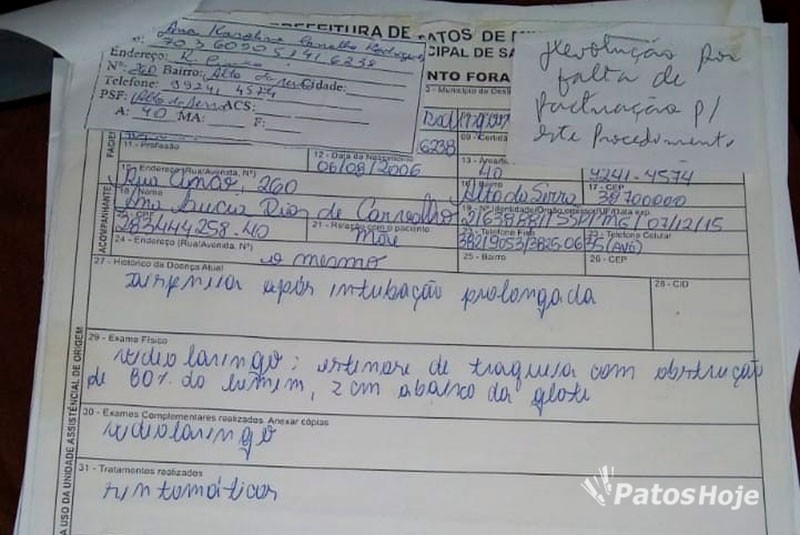 PREFEITURA DE PATOS DE
CIPAL DE SA
NTO FORA
Ana Karoline Carvalho Rodrigues
703609051416238
Endereço: R.
Nº: 260 Bairro: Alto da Serra Cidade:
Telefone: 99241 4574
PSF: Alto da Serra ACS:
A: 40 MA: F:
Devolução por
falta de
pactuação p/
este Procedimento.
3 - Município de
6238
11 - Profissão
12 - Data de Nascimento
06/08/2006
13 -
40
9241-4574
15 - Endereço (Rua/Avenida, Nº)
Rua 260
16 - Bairro
Alto da Serra
17 - CEP
38700000
18 - Nome
Ana Lucia Dias de Carvalho
19 - Nº Identidade/Órgão emissor/UF/Data exp.
07/12/15
20 - CPF
283444258-40
21 - Relação com o paciente
Mãe
22 - Telefone Fixo
38219053/3825-0635 (Avó)
23 - Telefone Celular
24 - Endereço (Rua/Avenida, Nº)
o mesmo
25 - Bairro
26 - CEP
27 - Histórico da Doença Atual
28 - CID
após intubação prolongada
29 - Exame Físico
videolaringo: estenose de traqueia com obstrução
de 80% do lumem, 2 cm abaixo da glote
30 - Exames Complementares realizados. Anexar cópias
videolaringo
31 - Tratamentos realizados
sintomáticos
ACOMPANHANTE
A USO DA UNIDADE ASSISTÊNCIAL DE ORIGEM
PatosHoje